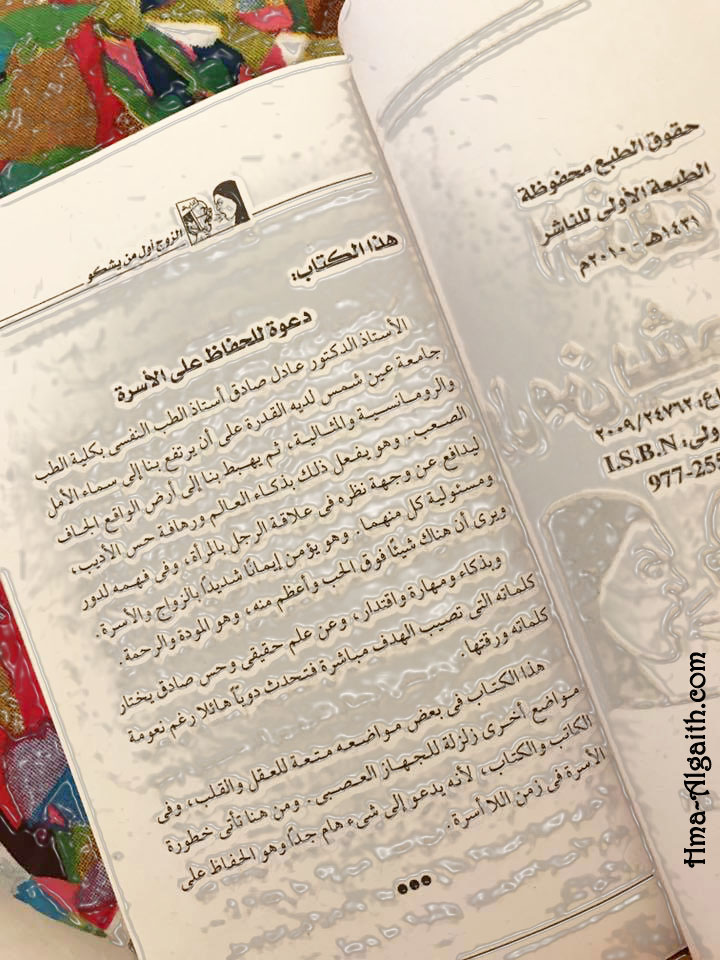 حقوق الطبع محفوظة
الطبعة الأولى للناشر
١٤٣١هـ - ٢٠١٠م
٢٠٠٩/٢٤٧٦٢
I.S.B.N
977-255
الزوج أول من يشكو
هذا الكتاب:
دعوة للحفاظ على الأسرة
الأستاذ الدكتور عادل صادق أستاذ الطب النفسى بكلية الطب
جامعة عين شمس لديه القدرة على أن يرتفع بنا إلى سماء الأمل
والرومانسية والمثالية، ثم يهبط بنا إلى أرض الواقع الجاف
الصعب. وهو يفعل ذلك بذكاء العالم ورهافة حس الأديب،
ليدافع عن وجهة نظره فى علاقة الرجل بالمرأة، وفى فهمه لدور
ومسئولية كل منهما. وهو يؤمن إيمانًا شديدًا بالزواج والأسرة.
ويرى أن هناك شيئًا فوق الحب وأعظم منه، وهو المودة والرحمة.
وبذكاء ومهارة واقتدار، وعن علم حقيقى وحس صادق يختار
كلماته التى تصيب الهدف مباشرة فتحدث دويًا هائلا رغم نعومة
كلماته ورقتها.
هذا الكتاب فى بعض مواضعه متعة للعقل والقلب، وفى
مواضع أخرى زلزلة للجهاز العصبى. ومن هنا تأتى خطورة
الكاتب والكتاب، لأنه يدعو إلى شىء هام جدًا وهو الحفاظ على
الأسرة فى زمن اللا أسرة.
Hma-Algaith.com